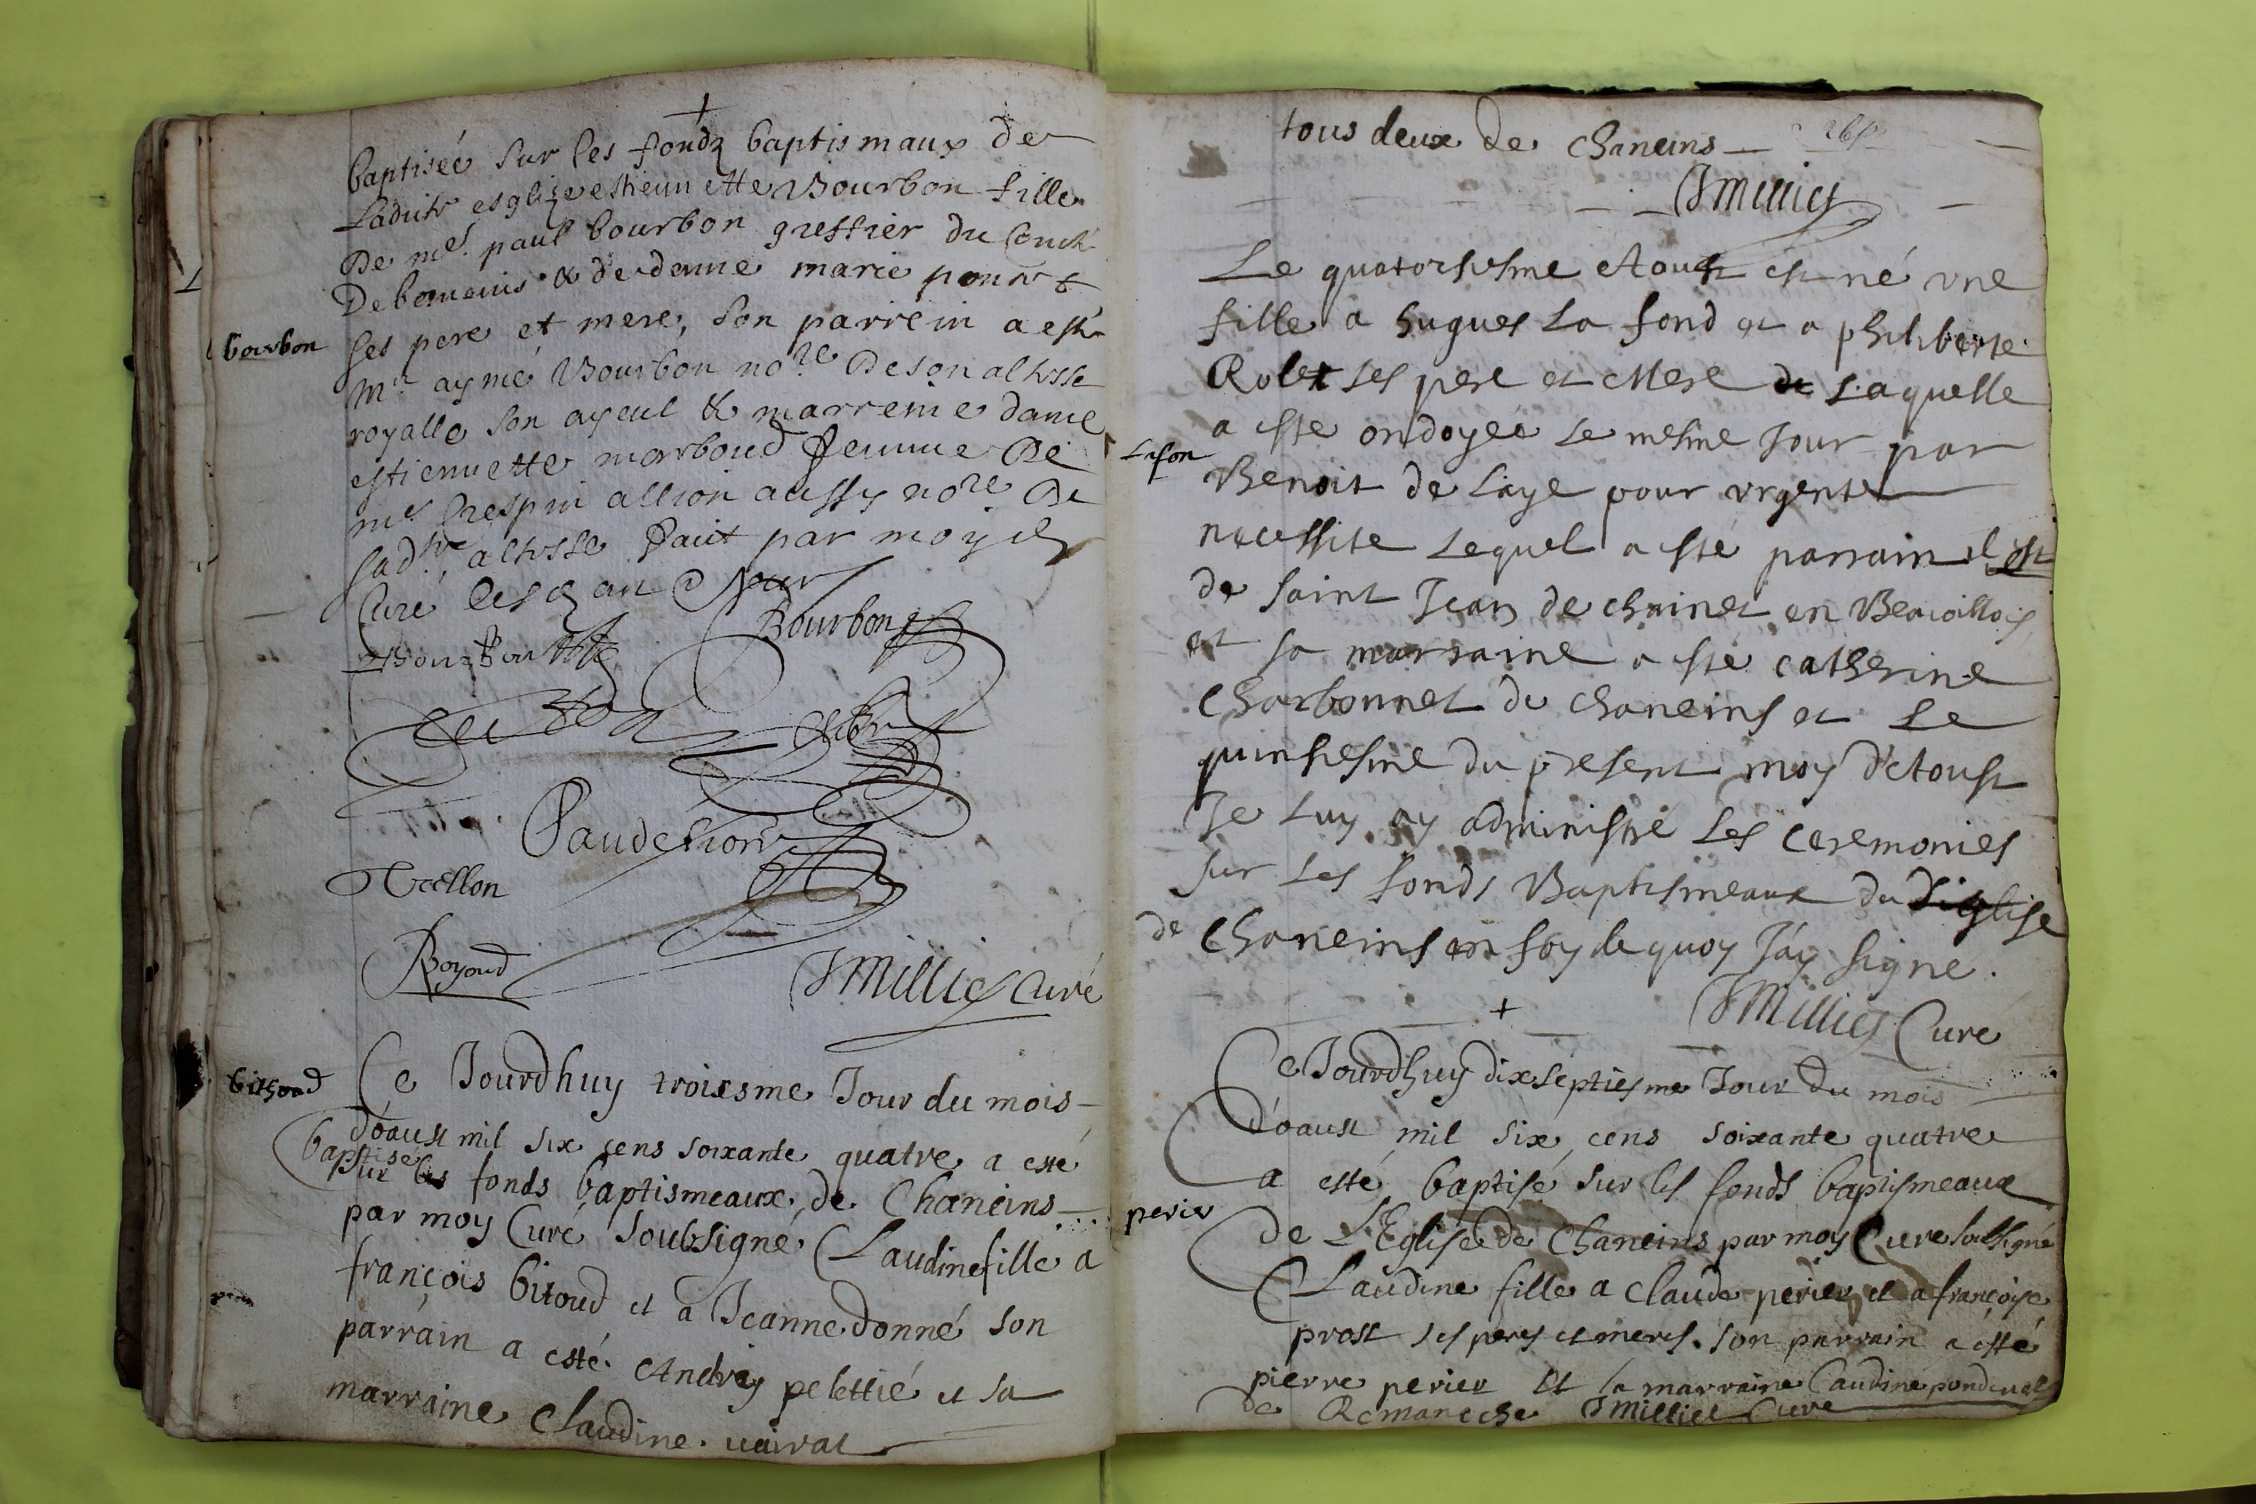 baptiseé sur les fondz baptismaux de
Laditte esglize estiennette Bourbon fille
De me. paul bourbon greffier du
De & de dame marie
bourbon
ses pere et mere, son parrein a esté
Mre aymé Bourbon nore De son altesse
royalle son ayeul & marreine dame
estiennette marboud femme De
me Crespin allion aussy nore De
sadte altesse faict par moy
Curé les an & jour
Bourbon
Paudethon
Boyoud
JMilliet Curé
bithoud
Ce Jourdhuy troixsme Jour du mois
d'oaust mil six cens soixante quatre a esté
baptisé
sur les fonds baptismeaux de Chaneins
par moy Curé soubsigné Claudine fille a
françois bitoud et a Jeanne donné son
parrain a esté Andrey pelettié et sa
marraine Claudine. vairat
tous deux de Chaneins
JMilliet
Le quatorsiesme Aoust est né une
fille a hugues La fond et a philiberte
Rolet ses pere et Mere de Laquelle
a esté ondoyeé le mesme Jour par
Lafon
Benoit de Laye pour urgente
necessite Lequel a sté parrain il est
de saint Jean de en
et sa marraine a sté catherine
Charbonnet de Chaneins et Le
quinsiesme du present moy d'Aoust
Je Luy ay administré Les Ceremonies
sur Les fonds Baptismeaux du d'église
de Chaneins en foy de quoy J'ay signe.
JMilliet Curé
Ce Jourdhuy dixseptiesme Jour du mois
d'oaust mil six cens soixante quatre
a esté baptisé sur les fonds baptismeaux
perier
de L'Eglise de Chaneins par moy Curé soubsigné
Claudine fille a Claude perier et a françoise
prost ses peres et meres. son parrain a esté
pierre perier Et sa marraine Claudine
de Romaneche JMilliet Curé